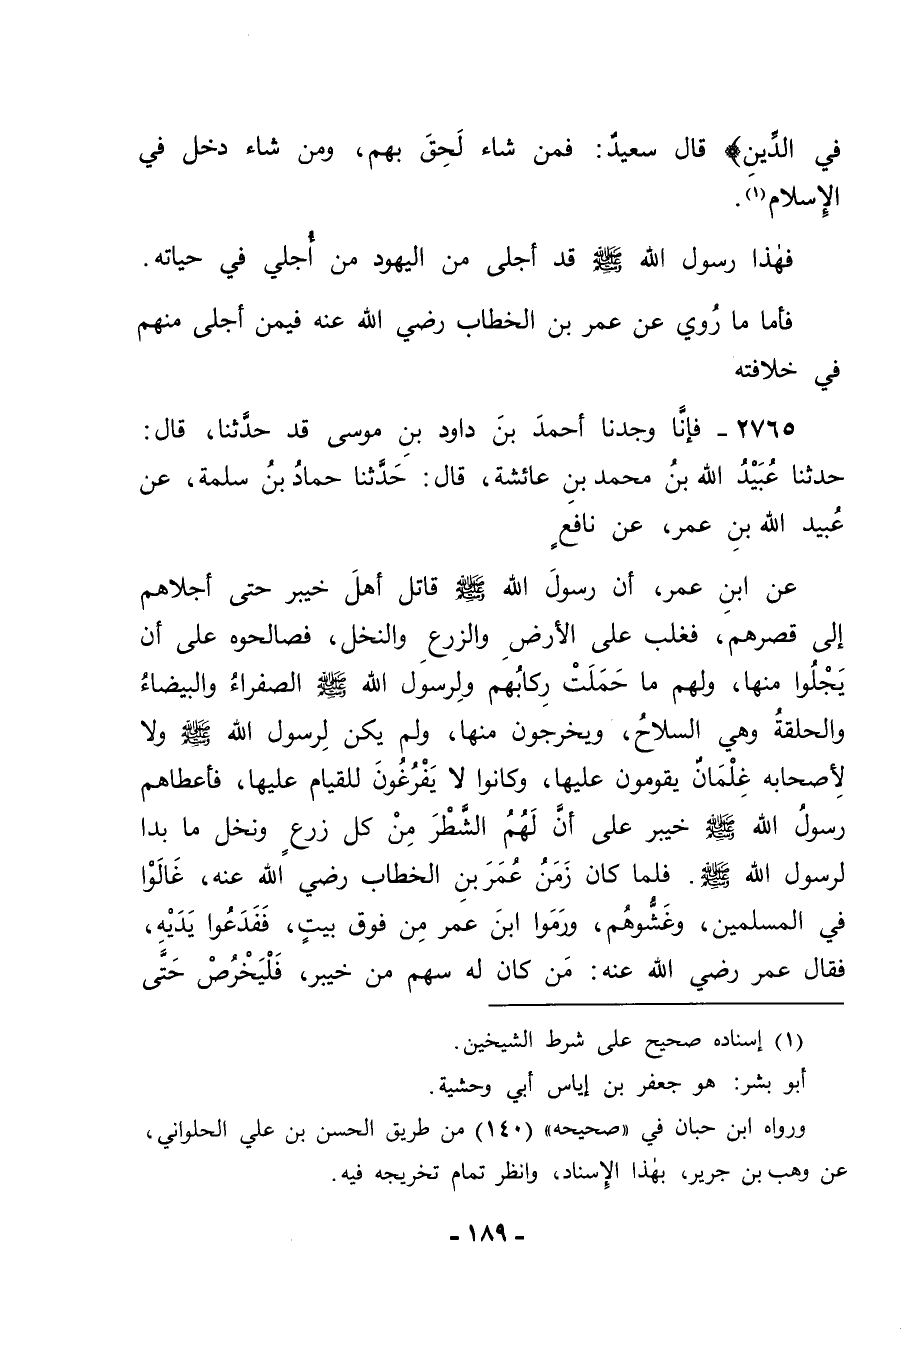 في الدِّينِ﴾ قال سعيدٌ: فمن شاء لَحِقَ بهم، ومن شاء دخل في
الإِسلام(١).
فهٰذا رسول الله ﷺ قد أجلى من اليهود من أُجلي في حياته.
فأما ما رُوي عن عمر بن الخطاب رضي الله عنه فيمن أجلى منهم
في خلافته
٢٧٦٥ ـ فإنَّا وجدنا أحمدَ بنَ داود بنِ موسى قد حدَّثنا، قال:
حدثنا عُبَيْدُ الله بنُ محمد بنِ عائشة، قال: حَدَّثنا حمادُ بنُ سلمة، عن
عُبيد الله بنِ عمر، عن نافعٍ
عن ابنِ عمر، أن رسولَ الله ﷺ قاتل أهلَ خيبر حتى أجلاهم
إلى قصرهم، فغلب على الأرضِ والزرعِ والنخل، فصالحوه على أن
يَجْلُوا منها، ولهم ما حَمَلَتْ رِكابُهم ولِرسول الله ﷺ الصفراءُ والبيضاءُ
والحلقةُ وهي السلاحُ، ويخرجون منها، ولم يكن لِرسول الله ﷺ ولا
لِأصحابه غِلْمَانٌ يقومون عليها، وكانوا لا يَفْرُغُونَ للقيام عليها، فأعطاهم
رسولُ الله ﷺ خيبر على أنَّ لَهُمُ الشَّطْرَ مِنْ كل زرعٍ ونخل ما بدا
لرسول الله ﷺ. فلما كان زَمَنُ عُمَرَ بنِ الخطاب رضي الله عنه، غَالَوْا
في المسلمين، وغَشُّوهُم، ورَمَوا ابنَ عمر مِن فوق بيتٍ، فَفَدَعُوا يَدَيْهِ،
فقال عمر رضي الله عنه: مَن كان له سهم من خيبر، فَلْيَخْرُصْ حَتَّى
(١) إسناده صحيح على شرط الشيخين.
أبو بشر: هو جعفر بن إياس أبي وحشية.
ورواه ابن حبان في «صحيحه» (١٤٠) من طريق الحسن بن علي الحلواني،
عن وهب بن جرير، بهٰذا الإِسناد، وانظر تمام تخريجه فيه.
- ١٨٩ -